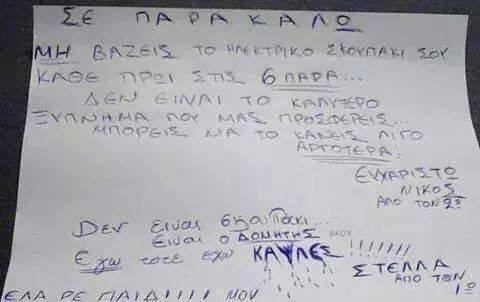 ΣΕ ΠΑΡΑΚΑΛΩ
ΜΗ ΒΑΖΕΙΣ ΤΟ ΗΛΕΚΤΡΙΚΟ ΣΚΟΥΠΑΚΙ ΣΟΥ
ΚΑΘΕ ΠΡΩΙ ΣΤΙΣ 6 ΠΑΡΑ...
ΔΕΝ ΕΙΝΑΙ ΤΟ ΚΑΛΥΤΕΡΟ
ΞΥΠΝΗΜΑ ΠΟΥ ΜΑΣ ΠΡΟΣΦΕΡΕΙΣ...
ΜΠΟΡΕΙΣ ΝΑ ΤΟ ΚΑΝΕΙΣ ΛΙΓΟ
ΑΡΓΟΤΕΡΑ!
ΕΥΧΑΡΙΣΤΩ
ΝΙΚΟΣ
ΑΠΟ ΤΟΝ 2ο
Δεν ειναι σκουπακι...
Ειναι ο ΔΟΝΗΤΗΣ μου
Εγω τοτε εχω ΚΑΥΛΕΣ!!!!!!!
ΣΤΕΛΛΑ
ΑΠΟ ΤΟΝ
1ο
ΕΛΑ ΡΕ ΠΑΙΔΙ!!!! ΜΟΥ